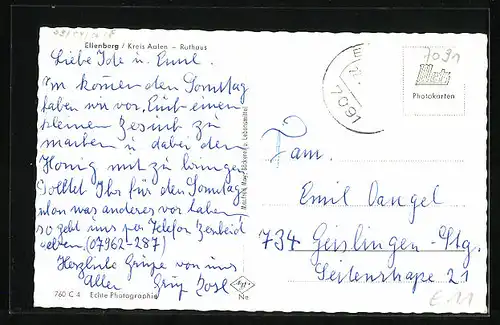 Ellenberg / Kreis Aalen - Rathaus
Liebe Ide u. Emil.
Am kommenden Sonntag
haben wir vor, Euch einen
kleinen Besuch zu
machen u. dabei den
Honig mit zu bringen
Solltet Ihr für den Sonntag
schon was anderes vor haben
so gebt uns per Telefon Bescheid
(07962-287)
Herzliche Grüße von uns
Allen
760 C 4 Echte Photographie
Agfa
Ne
7091
7091
Photokarten
Fam.
Emil Dangel
734 Geislingen-Stg.
Seitenstraße 21
E 11